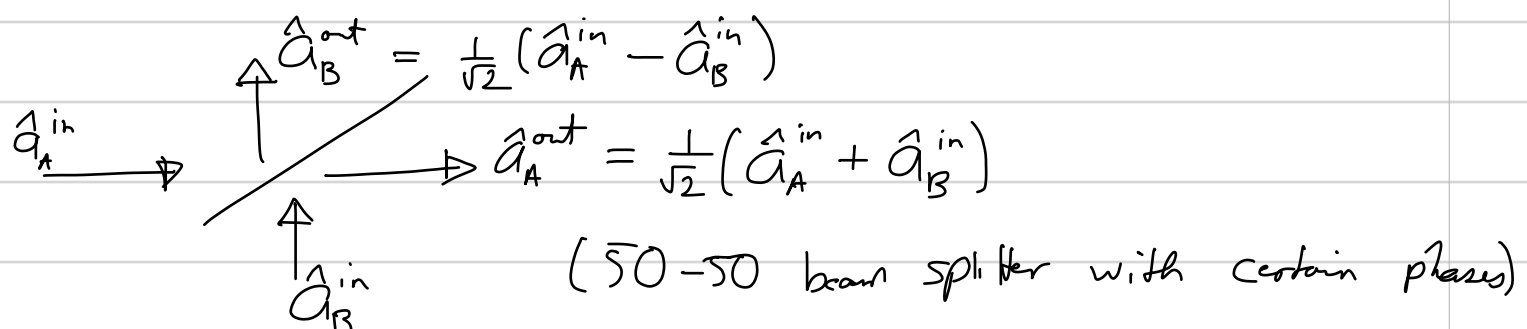 â_B^out = 1/√2 (â_A^in − â_B^in)
â_A^in
â_A^out = 1/√2 (â_A^in + â_B^in)
â_B^in
(50-50 beam splitter with certain phases)